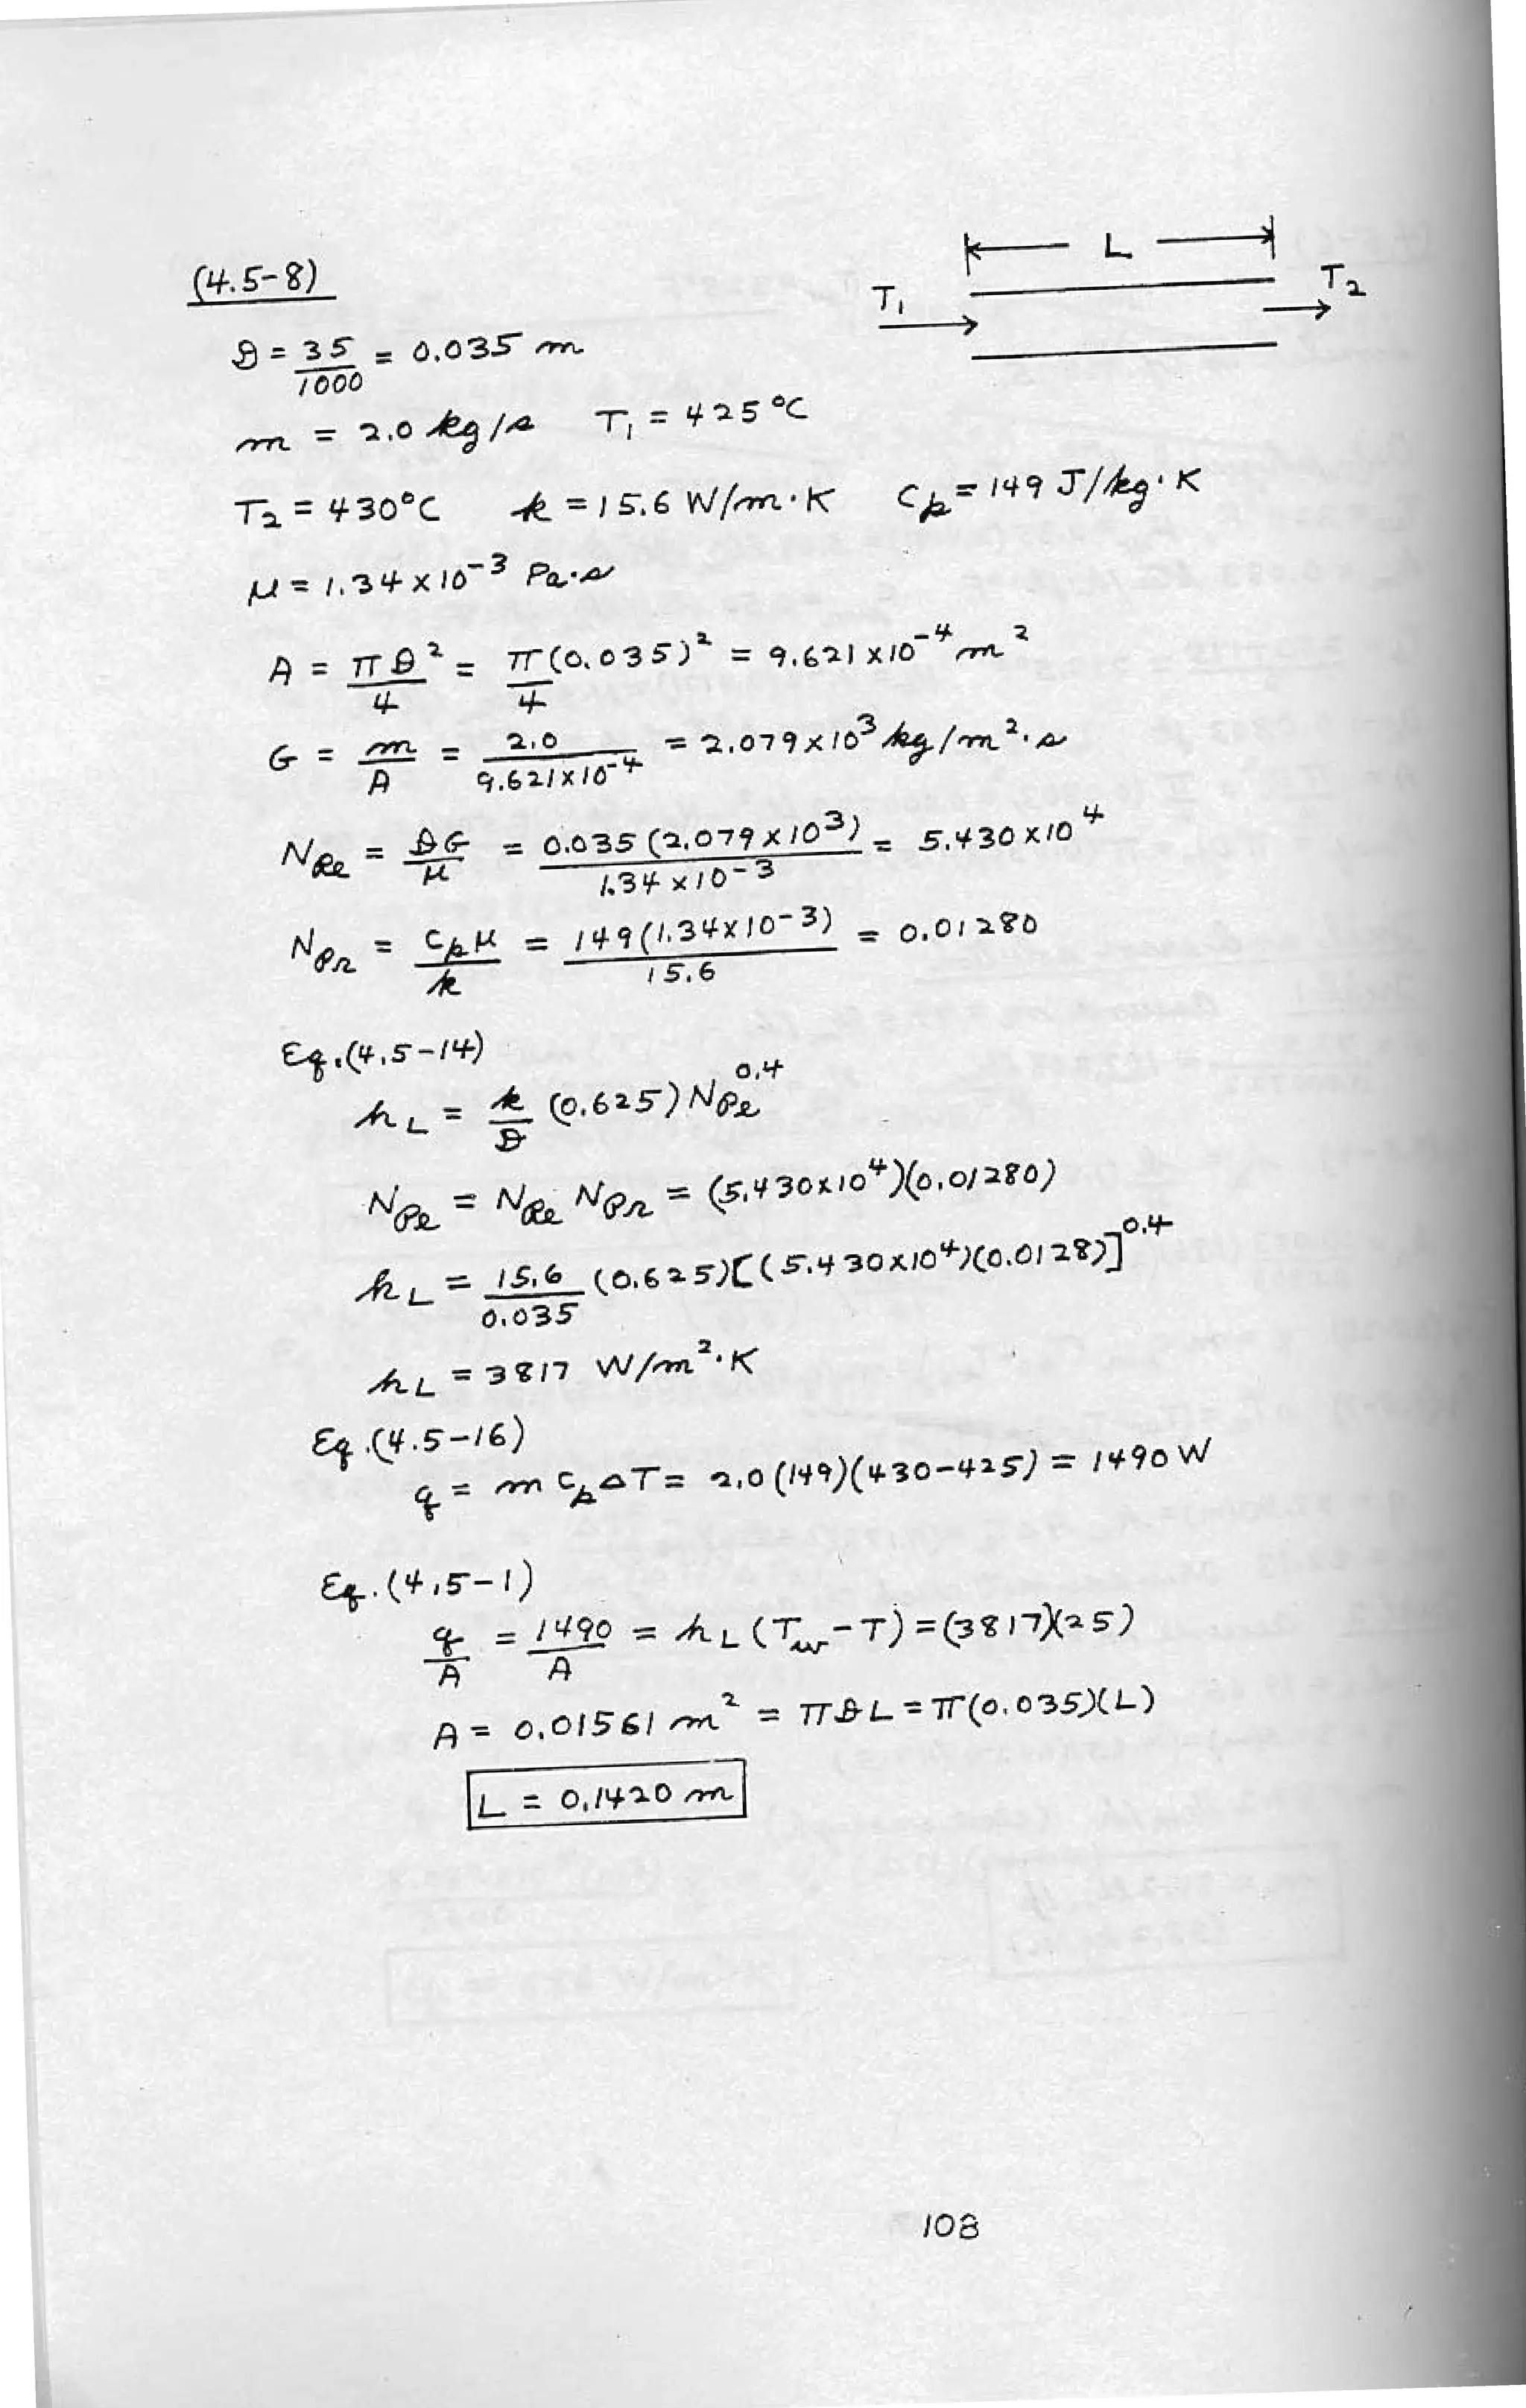 (4.5-8)
L
T₁
T₂
D = 35/1000 = 0.035 m
m = 2.0 kg/s   T₁ = 425°C
T₂ = 430°C   k = 15.6 W/m·K   Cp = 149 J/kg·K
μ = 1.34 x 10⁻³ Pa·s
A = πD²/4 = π/4 (0.035)² = 9.621 x 10⁻⁴ m²
G = m/A = 2.0/9.621x10⁻⁴ = 2.079 x 10³ kg/m²·s
N_Re = DG/μ = 0.035 (2.079 x 10³)/1.34 x 10⁻³ = 5.430 x 10⁴
N_Pr = Cpμ/k = 149 (1.34 x 10⁻³)/15.6 = 0.01280
Eq. (4.5-14)
h_L = k/D (0.625) N_Pe^0.4
N_Pe = N_Re N_Pr = (5.430x10⁴)(0.01280)
h_L = 15.6/0.035 (0.625)[(5.430x10⁴)(0.0128)]^0.4
h_L = 3817 W/m²·K
Eq. (4.5-16)
q = m Cp ΔT = 2.0 (149)(430-425) = 1490 W
Eq. (4.5-1)
q/A = 1490/A = h_L (T_w - T) = (3817)(25)
A = 0.01561 m² = πDL = π(0.035)(L)
L = 0.1420 m
108